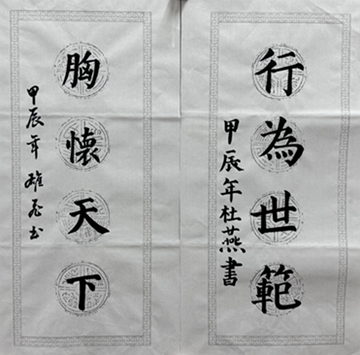 行為世範
甲辰年杜燕書
胸懷天下
甲辰年雄飞书